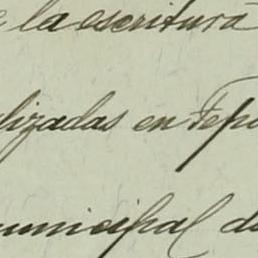 e la escritura
lizadas en Tepi
unicipal de